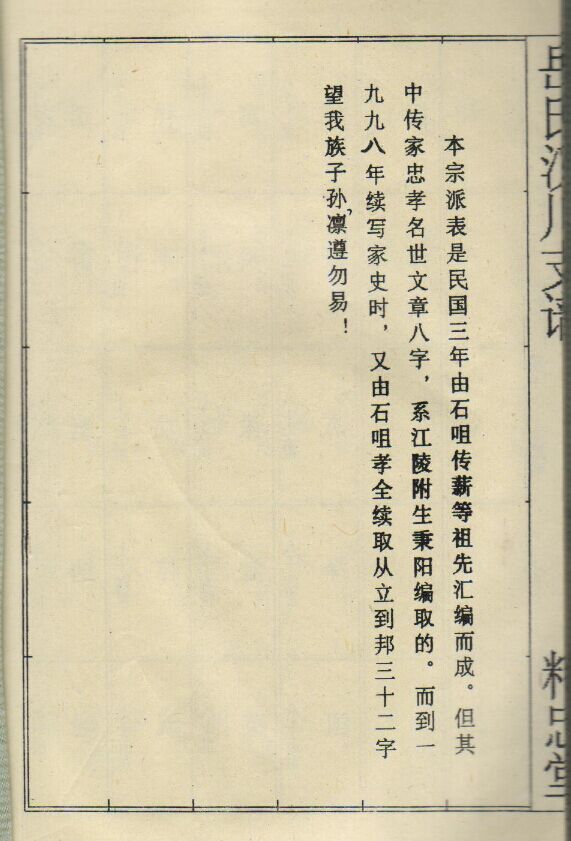 本宗派表是民国三年由石咀传薪等祖先汇编而成。但其
中传家忠孝名世文章八字，系江陵附生秉阳编取的。而到一
九九八年续写家史时，又由石咀孝全续取从立到邦三十二字
望我族子孙，凛遵勿易！
岳氏沙川支谱
精忠堂